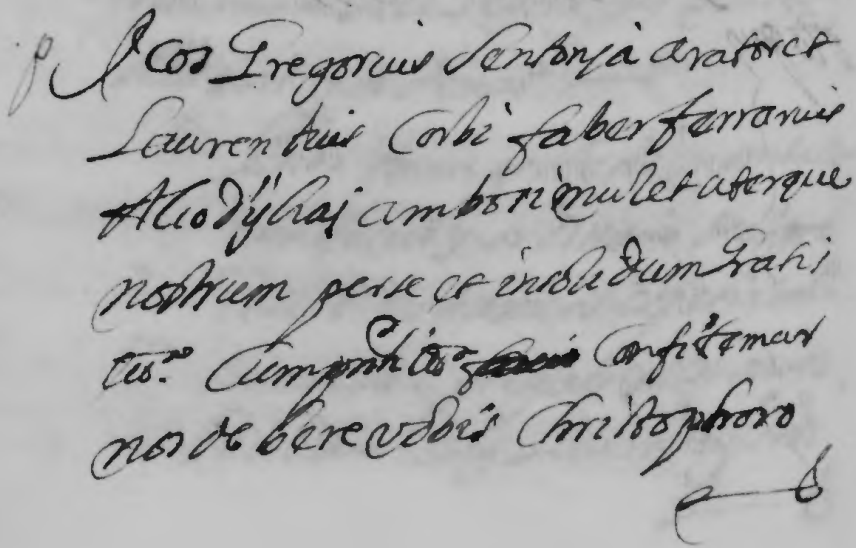 Nos Gregorius Sentonja arator et
Laurentius Corbi faber ferrarius
Alcodÿ ambo simul et uterque
nostrum per se et insolidum Grati
Cum Confitemur
nos debere vobis Christophoro